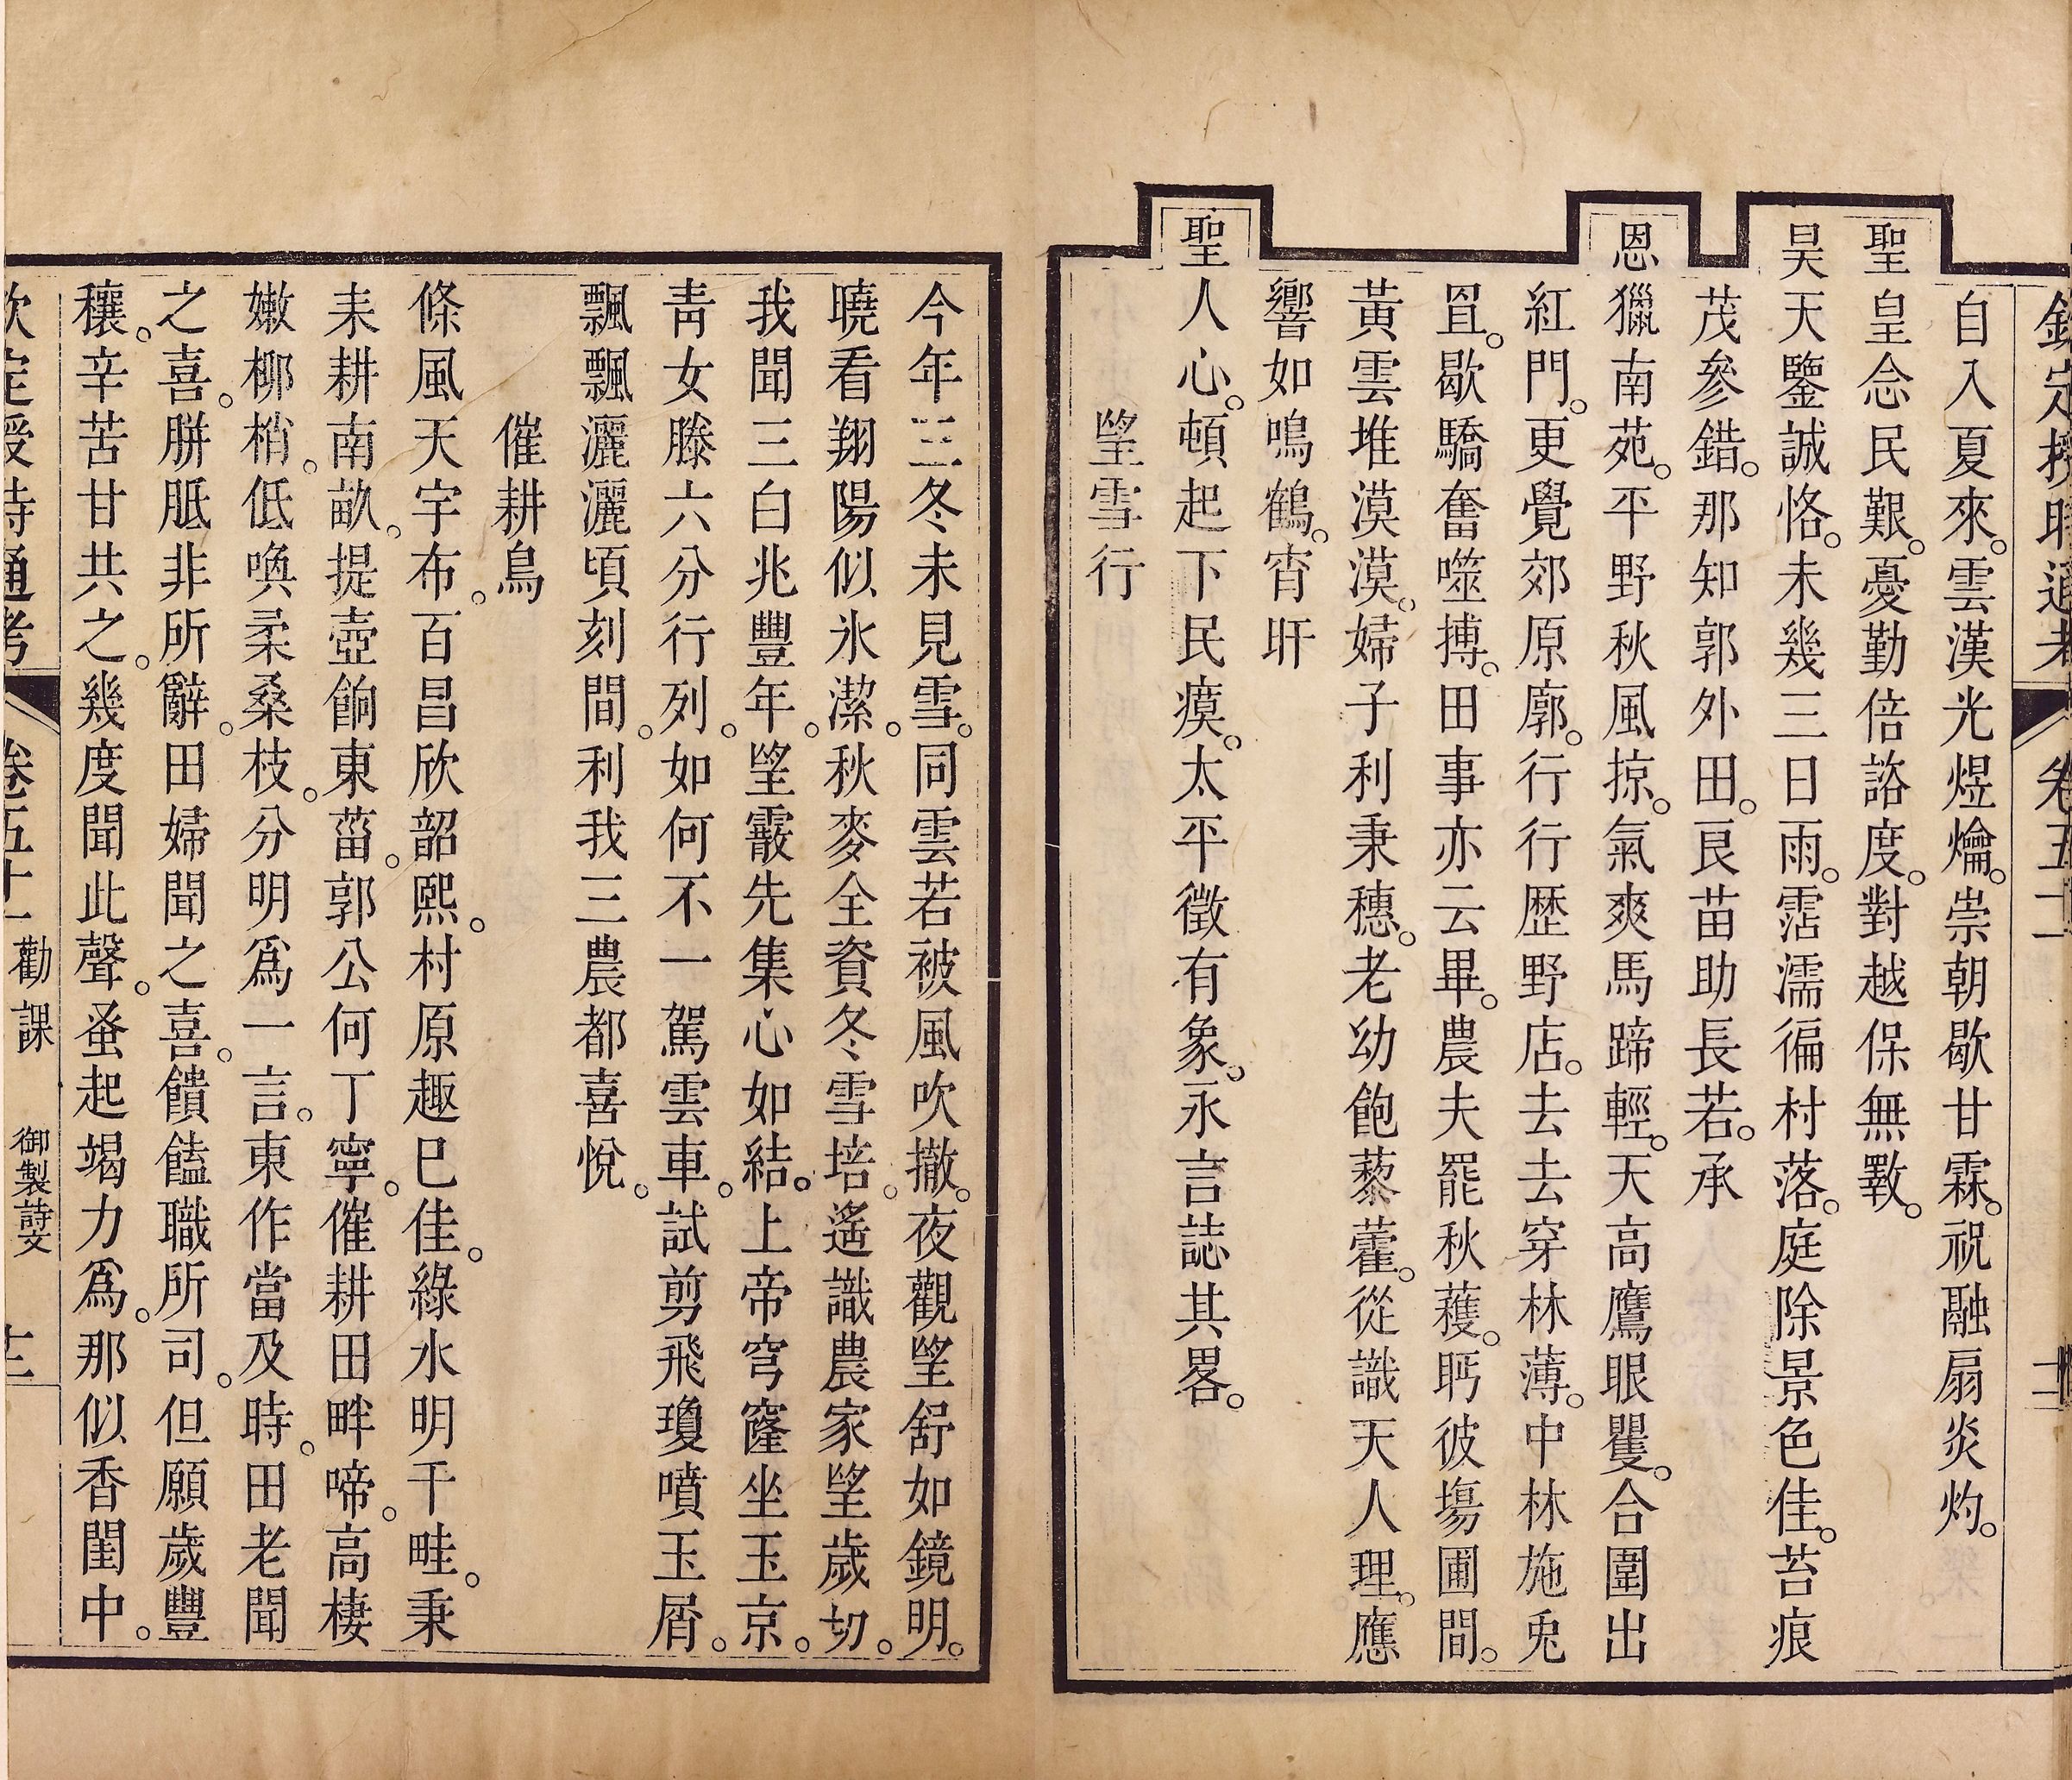 欽定授時通考
卷五十一
十二
自入夏來。雲漢光煜爚。崇朝歇甘霖。祝融扇炎灼。
聖皇念民艱。憂勤倍諮度。對越保無斁。
昊天鑒誠恪。未幾三日雨。霑濡徧村落。庭除景色佳。苔痕
茂參錯。那知郭外田。良苗助長若。承
恩獵南苑。平野秋風掠。氣爽馬蹄輕。天高鷹眼矍。合圍出
紅門。更覺郊原廓。行行歷野店。去去穿林薄。中林施兎
罝。歇驕奮噬搏。田事亦云畢。農夫罷秋蒦。眄彼塲圃間。
黃雲堆漠漠。婦子利秉穗。老幼飽藜藿。從識天人理。應
響如鳴鶴。宵旰
聖人心。頓起下民瘼。太平徵有象。永言誌其畧。
望雪行
今年三冬未見雪。同雲若被風吹撤。夜觀望舒如鏡明。
曉看翔陽似氷潔。秋麥全資冬雪培。遙識農家望歲切。
我聞三白兆豐年。望霰先集心如結。上帝穹窿坐玉京。
靑女滕六分行列。如何不一駕雲車。試剪飛瓊噴玉屑。
飄飄灑灑頃刻間。利我三農都喜悅。
催耕鳥
條風天宇布。百昌欣韶熙。村原趣巳佳。綠水明千畦。秉
耒耕南畝。提壺餉東菑。郭公何丁寧。催耕田畔啼。高棲
嫩柳梢。低喚柔桑枝。分明爲一言。東作當及時。田老聞
之喜。胼胝非所辭。田婦聞之喜。饋饁職所司。但願歲豐
穰。辛苦甘共之。幾度聞此聲。蚤起竭力爲。那似香閨中。
欽定授時通考
卷五十一
勸課
御製詩文
十二